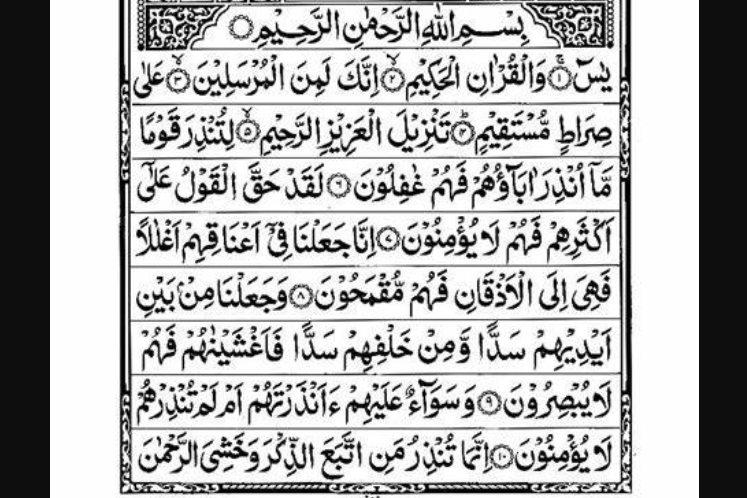 بِسْمِ اللّٰهِ الرَّحْمٰنِ الرَّحِيْمِ
يٰسٓ ۝١ وَالْقُرْاٰنِ الْحَكِيْمِ ۝٢ اِنَّكَ لَمِنَ الْمُرْسَلِيْنَ ۝٣ عَلٰى
صِرَاطٍ مُّسْتَقِيْمٍ ۝٤ تَنْزِيْلَ الْعَزِيْزِ الرَّحِيْمِ ۝٥ لِتُنْذِرَ قَوْمًا
مَّاۤ اُنْذِرَ اٰبَآؤُهُمْ فَهُمْ غٰفِلُوْنَ ۝٦ لَقَدْ حَقَّ الْقَوْلُ عَلٰٓى
اَكْثَرِهِمْ فَهُمْ لَا يُؤْمِنُوْنَ ۝٧ اِنَّا جَعَلْنَا فِيْۤ اَعْنَاقِهِمْ اَغْلٰلًا
فَهِىَ اِلَى الْاَذْقَانِ فَهُمْ مُّقْمَحُوْنَ ۝٨ وَجَعَلْنَا مِنْۢ بَيْنِ
اَيْدِيْهِمْ سَدًّا وَّمِنْ خَلْفِهِمْ سَدًّا فَاَغْشَيْنٰهُمْ فَهُمْ
لَا يُبْصِرُوْنَ ۝٩ وَسَوَآءٌ عَلَيْهِمْ ءَاَنْذَرْتَهُمْ اَمْ لَمْ تُنْذِرْهُمْ
لَا يُؤْمِنُوْنَ ۝١٠ اِنَّمَا تُنْذِرُ مَنِ اتَّبَعَ الذِّكْرَ وَخَشِىَ الرَّحْمٰنَ